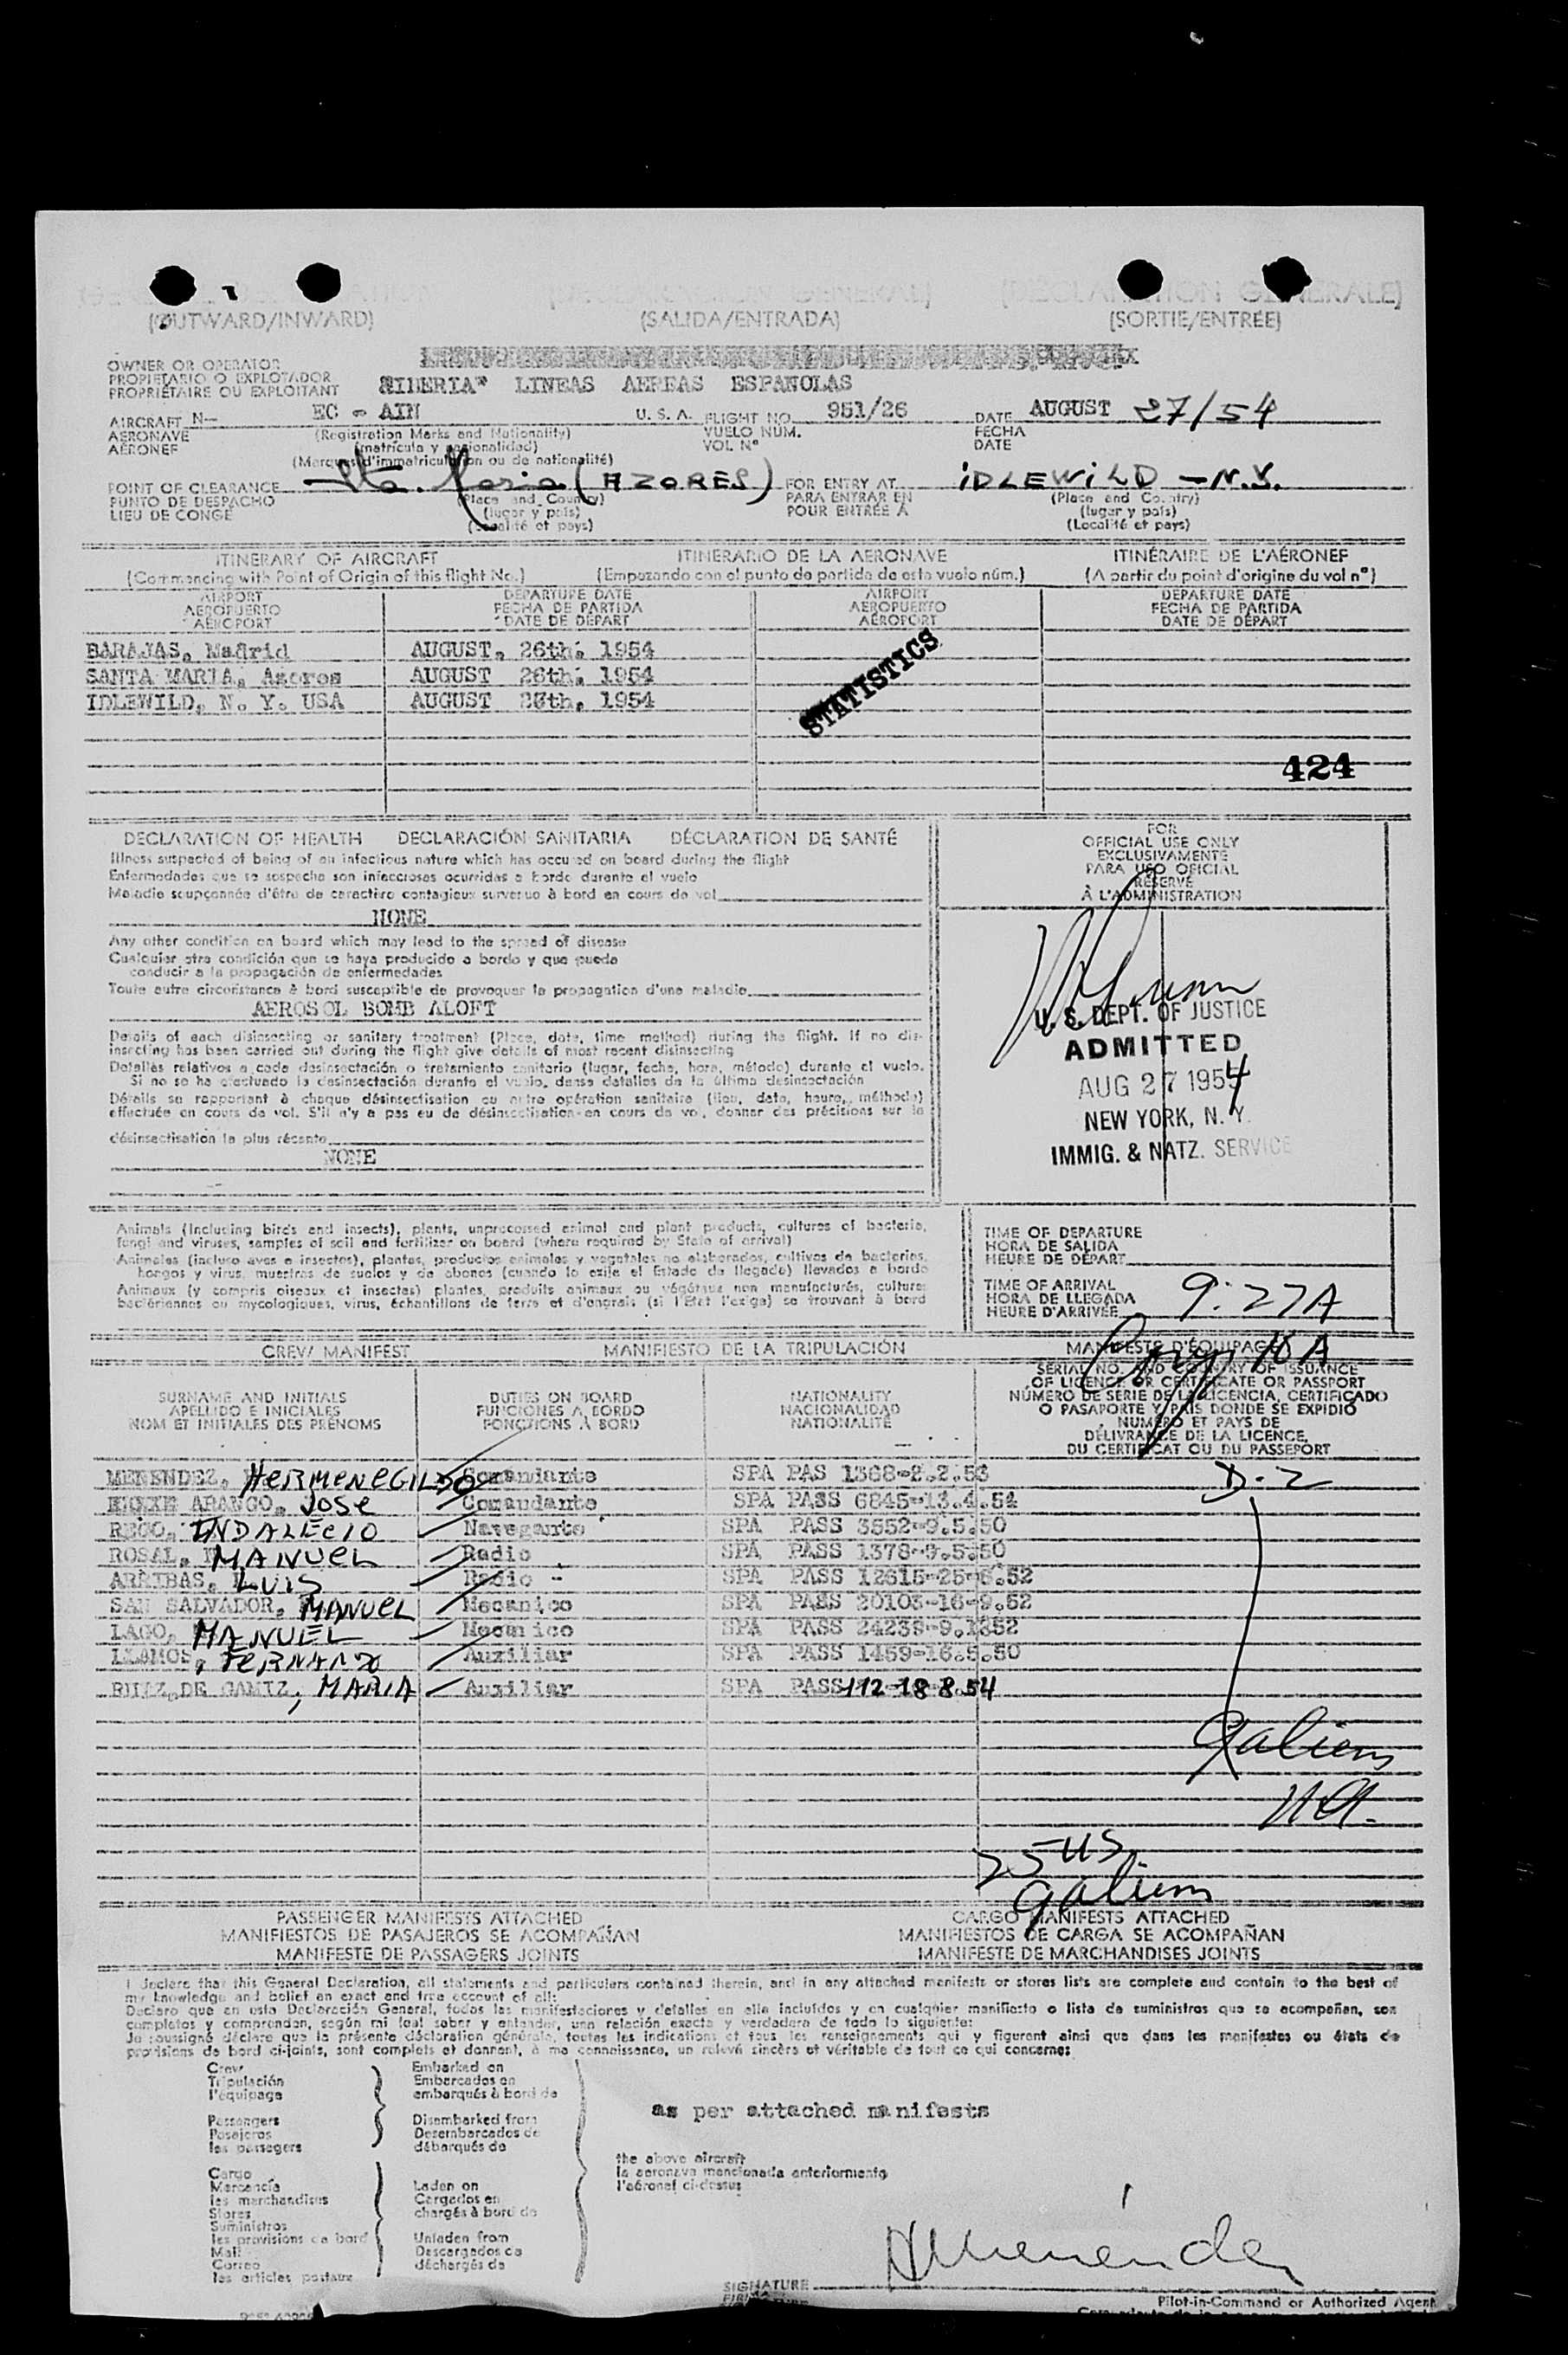 (OUTWARD/INWARD) (SALIDA/ENTRADA) (SORTIE/ENTRÉE)
OWNER OR OPERATOR
PROPIETARIO O EXPLOTADOR
PROPRIÉTAIRE OU EXPLOITANT
"IBERIA" LINEAS AEREAS ESPAÑOLAS
AIRCRAFT N— EC - AIN U. S. A. FLIGHT NO. 951/26 DATE AUGUST 27/54
AERONAVE (Registration Marks and Nationality) VUELO NÚM. FECHA
AÉRONEF (matrícula y nacionalidad) VOL Nº DATE
(Marques d'immatriculation ou de nationalité)
POINT OF CLEARANCE Sta. Maria (AZORES) FOR ENTRY AT IDLEWILD - N.Y.
PUNTO DE DESPACHO (Place and Country) PARA ENTRAR EN (Place and Country)
LIEU DE CONGÉ (lugar y país) POUR ENTRÉE A (lugar y país)
(Localité et pays) (Localité et pays)
ITINERARY OF AIRCRAFT ITINERARIO DE LA AERONAVE ITINÉRAIRE DE L'AÉRONEF
(Commencing with Point of Origin of this flight No.) (Empezando con el punto de partida de este vuelo núm.) (A partir du point d'origine du vol nº)
AIRPORT DEPARTURE DATE AIRPORT DEPARTURE DATE
AEROPUERTO FECHA DE PARTIDA AEROPUERTO FECHA DE PARTIDA
AÉROPORT DATE DE DÉPART AÉROPORT DATE DE DÉPART
BARAJAS, Madrid AUGUST, 26th, 1954
SANTA MARIA, Azores AUGUST 26th, 1954
IDLEWILD, N. Y. USA AUGUST 1954
STATISTICS
424
DECLARATION OF HEALTH DECLARACIÓN SANITARIA DÉCLARATION DE SANTÉ
Illness suspected of being of an infectious nature which has occured on board during the flight
Enfermedades que se sospecha son infecciosas ocurridas a bordo durante el vuelo
Maladie soupçonnée d'être de caractère contagieux survenue à bord en cours de vol
NONE
Any other condition on board which may lead to the spread of disease
Cualquier otra condición que se haya producido a bordo y que pueda
conducir a la propagación de enfermedades
Toute autre circonstance à bord susceptible de provoquer la propagation d'une maladie
AEROSOL BOMB ALOFT
Details of each disinsecting or sanitary treatment (Place, date, time method) during the flight. If no dis-
insecting has been carried out during the flight give details of most recent disinsecting
Detalles relativos a cada desinsectación o tratamiento sanitario (lugar, fecha, hora, método) durante el vuelo.
Si no se ha efectuado la desinsectación durante el vuelo, dense detalles de la última desinsectación
Détails se rapportant à chaque désinsectisation ou autre opération sanitaire (lieu, date, heure, méthode)
effectuée en cours de vol. S'il n'y a pas eu de désinsectisation en cours de vol, donner des précisions sur la
désinsectisation la plus récente
NONE
FOR
OFFICIAL USE ONLY
EXCLUSIVAMENTE
PARA USO OFICIAL
RÉSERVÉ
À L'ADMINISTRATION
U. S. DEPT. OF JUSTICE
ADMITTED
AUG 27 1954
NEW YORK, N. Y.
IMMIG. & NATZ. SERVICE
Animals (including birds and insects), plants, unprocessed animal and plant products, cultures of bacteria,
fungi and viruses, samples of soil and fertilizer on board (where required by State of arrival)
Animales (incluso aves e insectos), plantas, productos animales y vegetales no elaborados, cultivos de bacterias,
hongos y virus, muestras de suelos y de abonos (cuando lo exija el Estado de llegada) llevados a bordo
Animaux (y compris oiseaux et insectes) plantes, produits animaux ou végétaux non manufacturés, cultures
bactériennes ou mycologiques, virus, échantillons de terre et d'engrais (si l'État l'exige) se trouvant à bord
TIME OF DEPARTURE
HORA DE SALIDA
HEURE DE DÉPART
TIME OF ARRIVAL
HORA DE LLEGADA
HEURE D'ARRIVÉE
9:27A
CREW MANIFEST MANIFIESTO DE LA TRIPULACIÓN MANIFESTE D'ÉQUIPAGE
SURNAME AND INITIALS DUTIES ON BOARD NATIONALITY
APELLIDO E INICIALES FUNCIONES A BORDO NACIONALIDAD
NOM ET INITIALES DES PRÉNOMS FONCTIONS À BORD NATIONALITÉ
SERIAL NO. AND COUNTRY OF ISSUANCE
OF LICENCE OR CERTIFICATE OR PASSPORT
NÚMERO DE SERIE DE LA LICENCIA, CERTIFICADO
O PASAPORTE Y PAÍS DONDE SE EXPIDIÓ
NUMÉRO ET PAYS DE
DÉLIVRANCE DE LA LICENCE,
DU CERTIFICAT OU DU PASSEPORT
MENENDEZ, HERMENEGILDO Comandante SPA PAS 1368-2.2.53 D-2
ARANGO, JOSE Comandante SPA PASS 6845-13.4.54
REGO, INDALECIO Navegante SPA PASS 3552-9.5.50
ROSAL, MANUEL Radio SPA PASS 1378-9.5.50
ARRIBAS, LUIS Radio - SPA PASS 12615-25-6.52
SAN SALVADOR, MANUEL Mecanico SPA PASS 20103-16-9.52
LAGO, MANUEL Mecanico SPA PASS 24239-9.1352
LLAMOS, FERNANDO Auxiliar SPA PASS 1459-16.5.50
RUIZ DE GAMIZ, MARIA Auxiliar SPA PASS 112-18-8.54
9 aliens
25-US
9 aliens
PASSENGER MANIFESTS ATTACHED CARGO MANIFESTS ATTACHED
MANIFIESTOS DE PASAJEROS SE ACOMPAÑAN MANIFIESTOS DE CARGA SE ACOMPAÑAN
MANIFESTE DE PASSAGERS JOINTS MANIFESTE DE MARCHANDISES JOINTS
I declare that this General Declaration, all statements and particulars contained therein, and in any attached manifests or stores lists are complete and contain to the best of
my knowledge and belief an exact and true account of all:
Declaro que en esta Declaración General, todas las manifestaciones y detalles en ella incluídos y en cualquier manifiesto o lista de suministros que se acompañan, son
completos y comprenden, según mi leal saber y entender, una relación exacta y verdadera de todo lo siguiente:
Je soussigné déclare que la présente déclaration générale, toutes les indications et tous les renseignements qui y figurent ainsi que dans les manifestes ou états de
provisions de bord ci-joints, sont complets et donnent, à ma connaissance, un relevé sincère et véritable de tout ce qui concerne:
Crew Embarked on
Tripulación Embarcados en
l'équipage embarqués à bord de
as per attached manifests
Passengers Disembarked from
Pasajeros Desembarcados de
les passagers débarqués de
the above aircraft
la aeronave mencionada anteriormente
l'aéronef ci-dessus
Cargo
Mercancía Laden on
les marchandises Cargados en
Stores chargés à bord de
Suministros
les provisions de bord Unladen from
Mail Descargados de
Correo déchargés de
les articles postaux
HMenendez
SIGNATURE
FIRMA
Pilot-in-Command or Authorized Agent